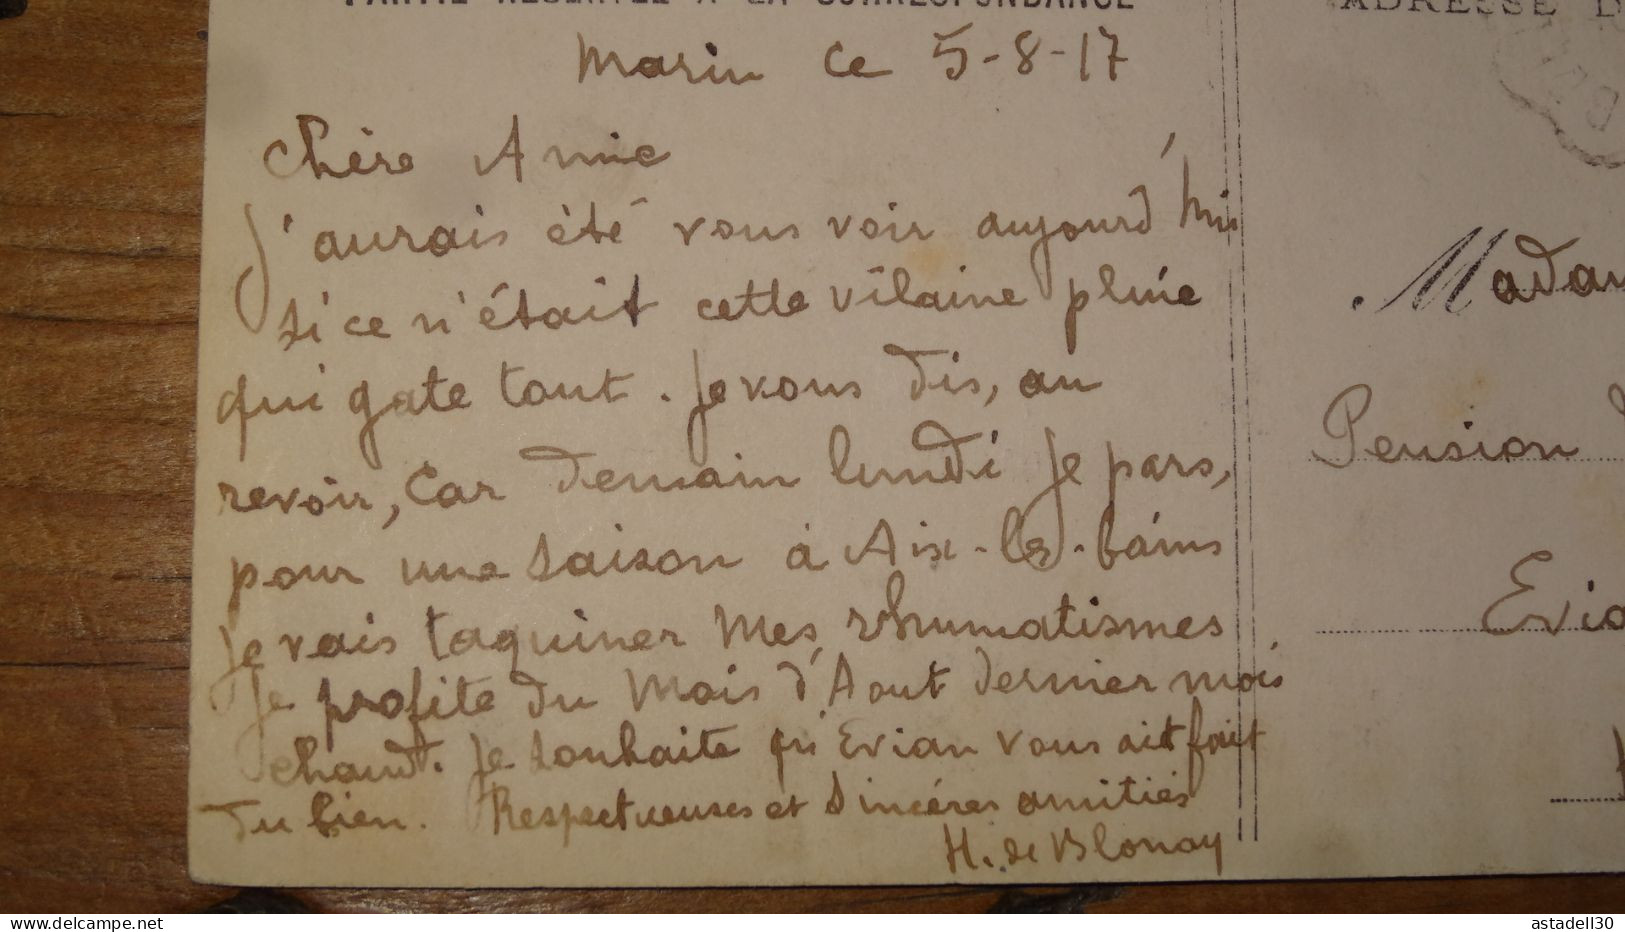 PARTIE RÉSERVÉE A LA CORRESPONDANCE
ADRESSE D
Marin ce 5-8-17
Chère Amie
J'aurais été vous voir aujourd'hui
si ce n'était cette vilaine pluie
qui gate tout. Je vous dis, au
revoir, Car demain lundi je pars,
pour une saison à Aix-les-bains
Je vais taquiner mes rhumatismes
Je profite du Mois d'Aout dernier mois
chaud. Je souhaite qu'Evian vous ait fait
du bien. Respectueuses et Sincéres amitiés
H. de Blonay
Madam
Pension
Evia
astadell30